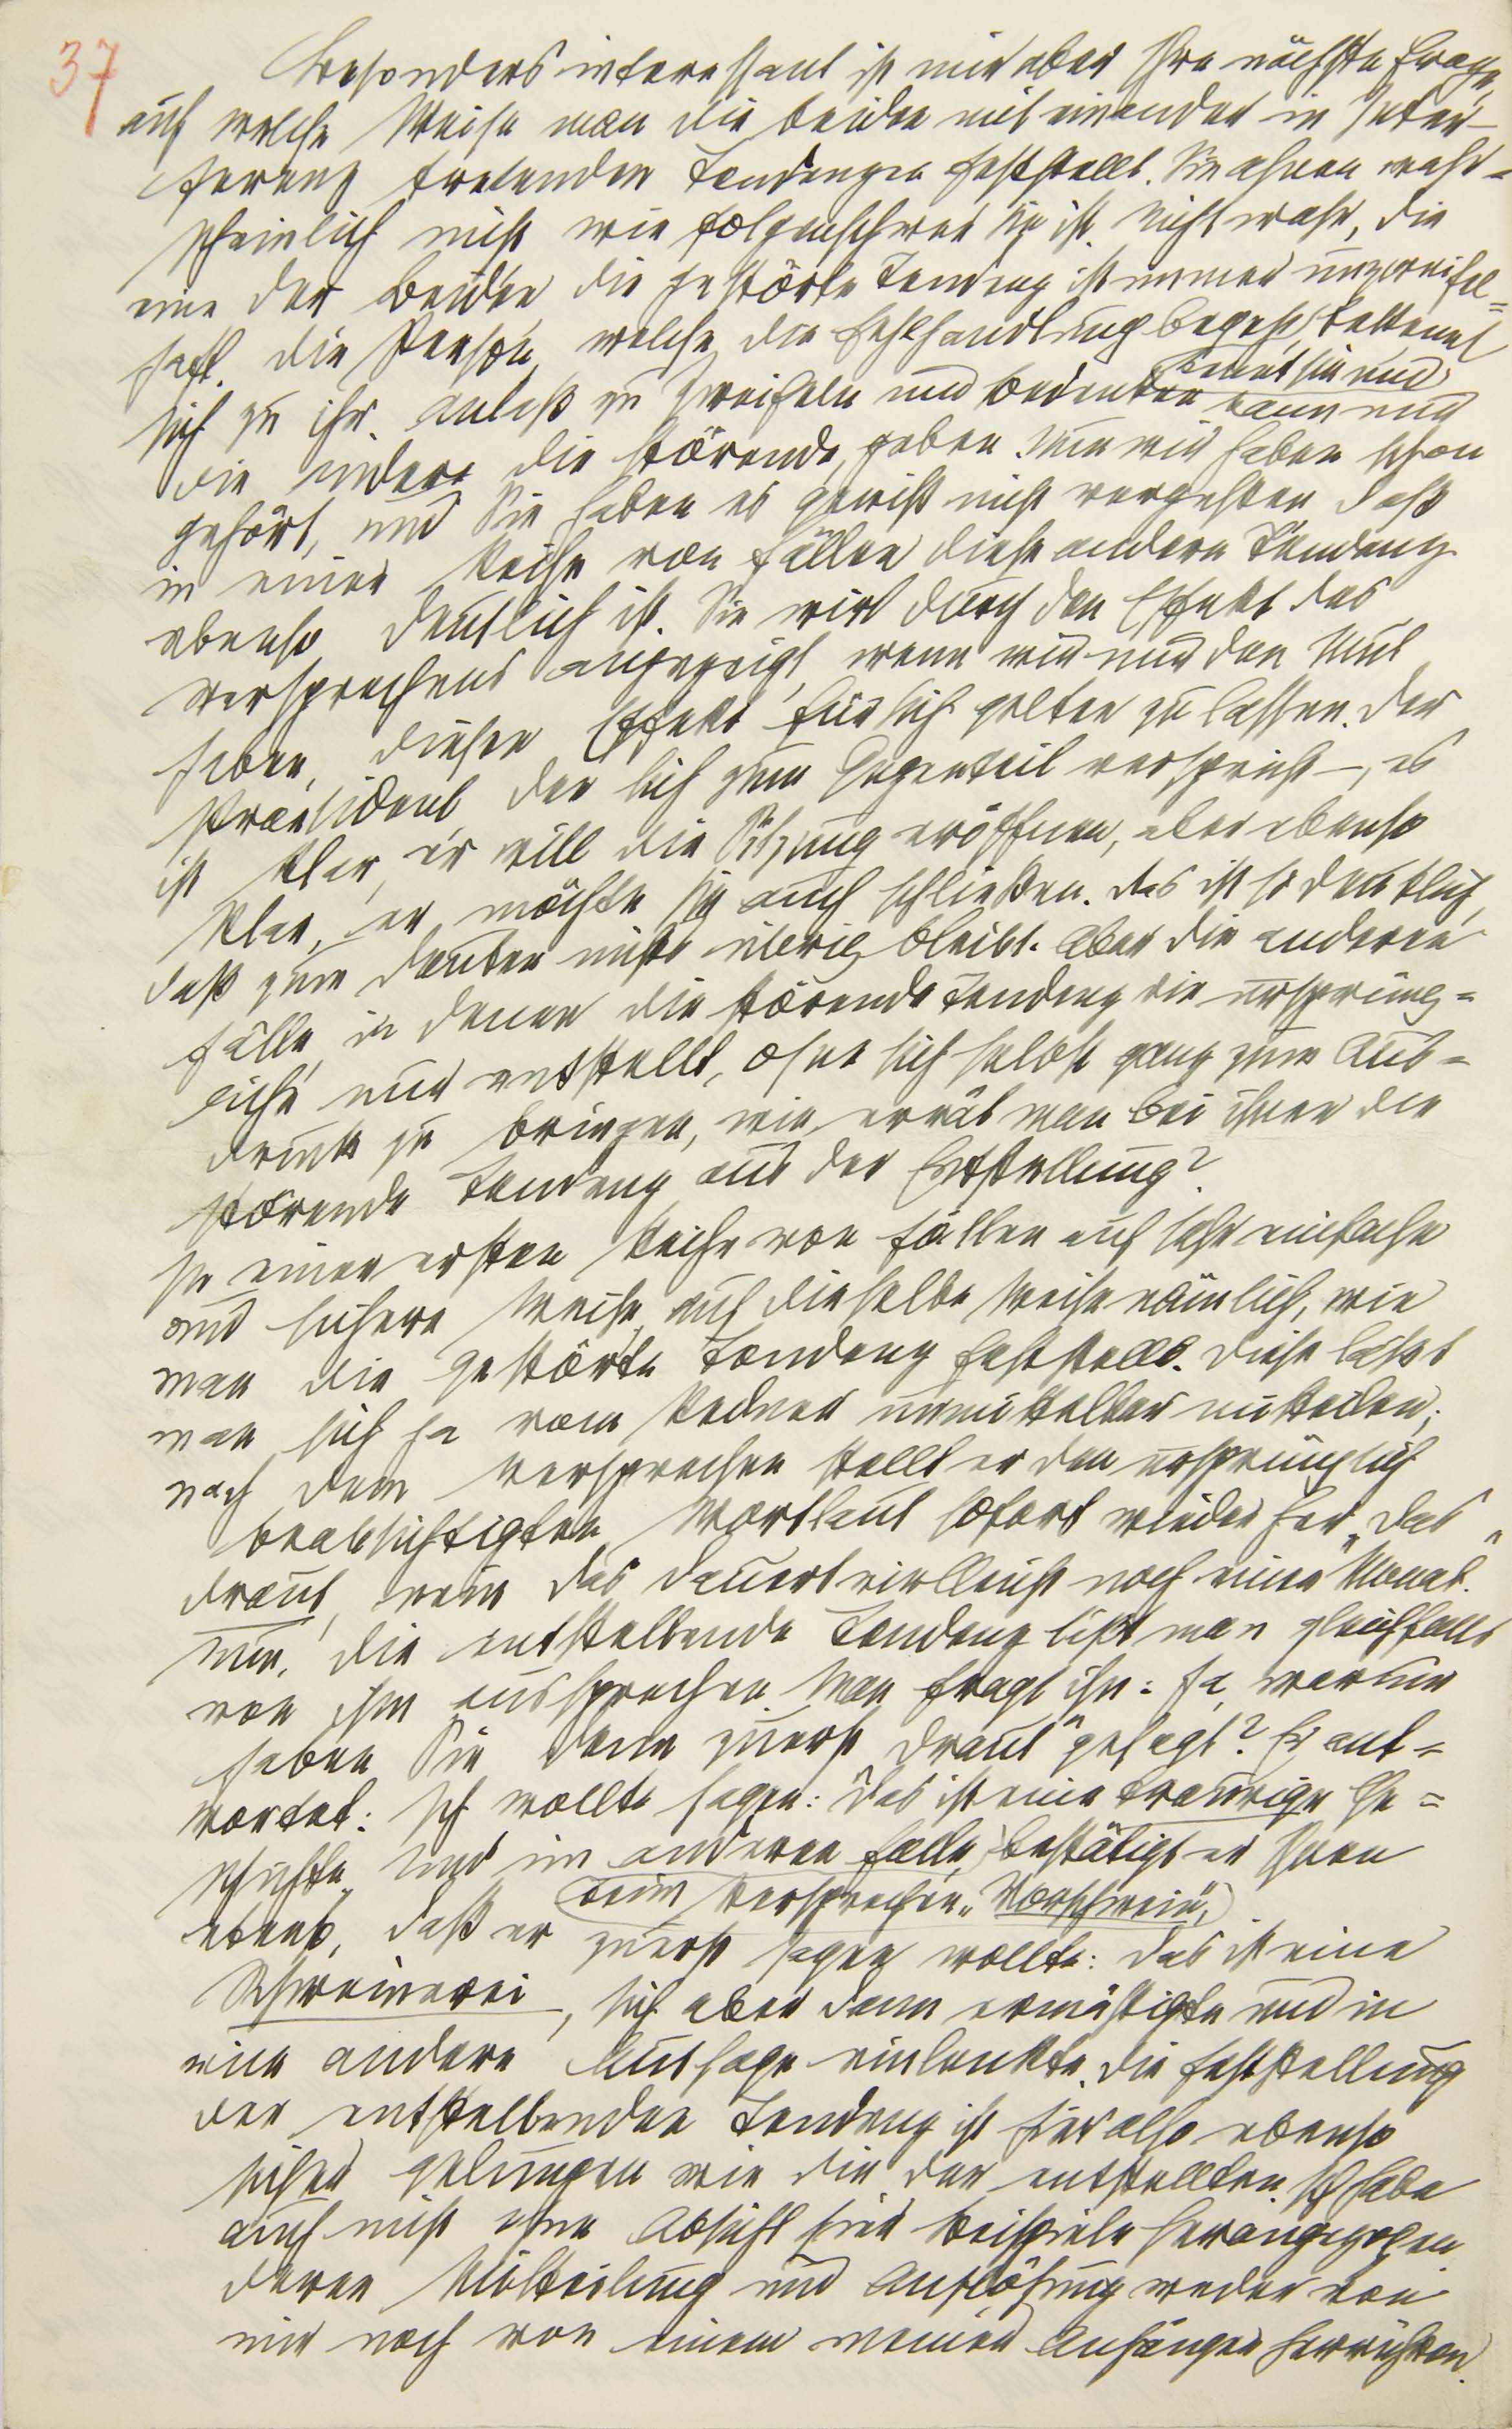 37
Besonders interessant ist mir aber Ihre nächste Frage,
auf welche Weise man die beiden mit einander in Inter-
ferenz tretenden Tendenzen feststellt. Sie ahnen wahr=
scheinlich nicht wie folgenschwer sie ist. Nicht wahr, die
eine der beiden, die gestörte Tendenz ist immer unzweifel=
haft. die Person, welche die Fehlhandlung begeht,
kennt sie und
bekennt
sich zu ihr. Anlaß zu Zweifeln und Bedenken kann nur
die andere die störende, geben. Nun wir haben schon
gehört, und Sie haben es gewiß nicht vergessen daß
in einer Reihe von Fällen diese andere Tendenz
ebenso deutlich ist. Sie wird durch den Effekt des
Versprechens angezeigt, wenn wir nur den Mut
haben, diesen Effekt für sich gelten zu lassen. Der
Præsident der sich zum Gegenteil verspricht –, es
ist klar, er will die Sitzung eröffnen, aber ebenso
klar, er möchte sie auch schließen. das ist so deutlich,
daß zum Deuten nichts übrig bleibt. Aber die anderen
Fälle, in denen die störende Tendenz die ursprüng=
liche nur entstellt, ohne sich selbst ganz zum Aus=
druck zu bringen, wie errät man bei ihnen die
störende Tendenz aus der Entstellung?
In einer ersten Reihe von Fällen auf sehr einfache
und sichere Weise, auf dieselbe Weise nämlich, wie
man die gestörte Tendenz feststellt. diese läßt
man sich ja vom Redner unmittelbar mitteilen;
nach dem Versprechen stellt er den ursprünglich
beabsichtigten Wortlaut sofort wieder her. „Das
draut, nein das dauert vielleicht noch einen Monat.“
Nun, die entstellende Tendenz läßt man gleichfalls
von ihm aussprechen. Man fragt ihn: Ja, warum
haben Sie denn zuerst „draut“ gesagt? Er ant=
wortet: Ich wollte sagen: Das ist eine traurige Ge=
schichte, und im anderen Falle, bestätigt er Ihnen
beim Versprechen „Vorschwein“,
ebenso, daß er zuerst sagen wollte: das ist eine
Schweinerei, sich aber dann ermäßigte und in
eine andere Aussage einlenkte. die Feststellung
der entstellenden Tendenz ist hier also ebenso
sicher gelungen wie die der entstellten. Ich habe
auch nicht ohne Absicht hier Beispiele herangezogen
deren Mitteilung und Auflösung weder von
mir noch von einem meiner Anhänger herrühren.